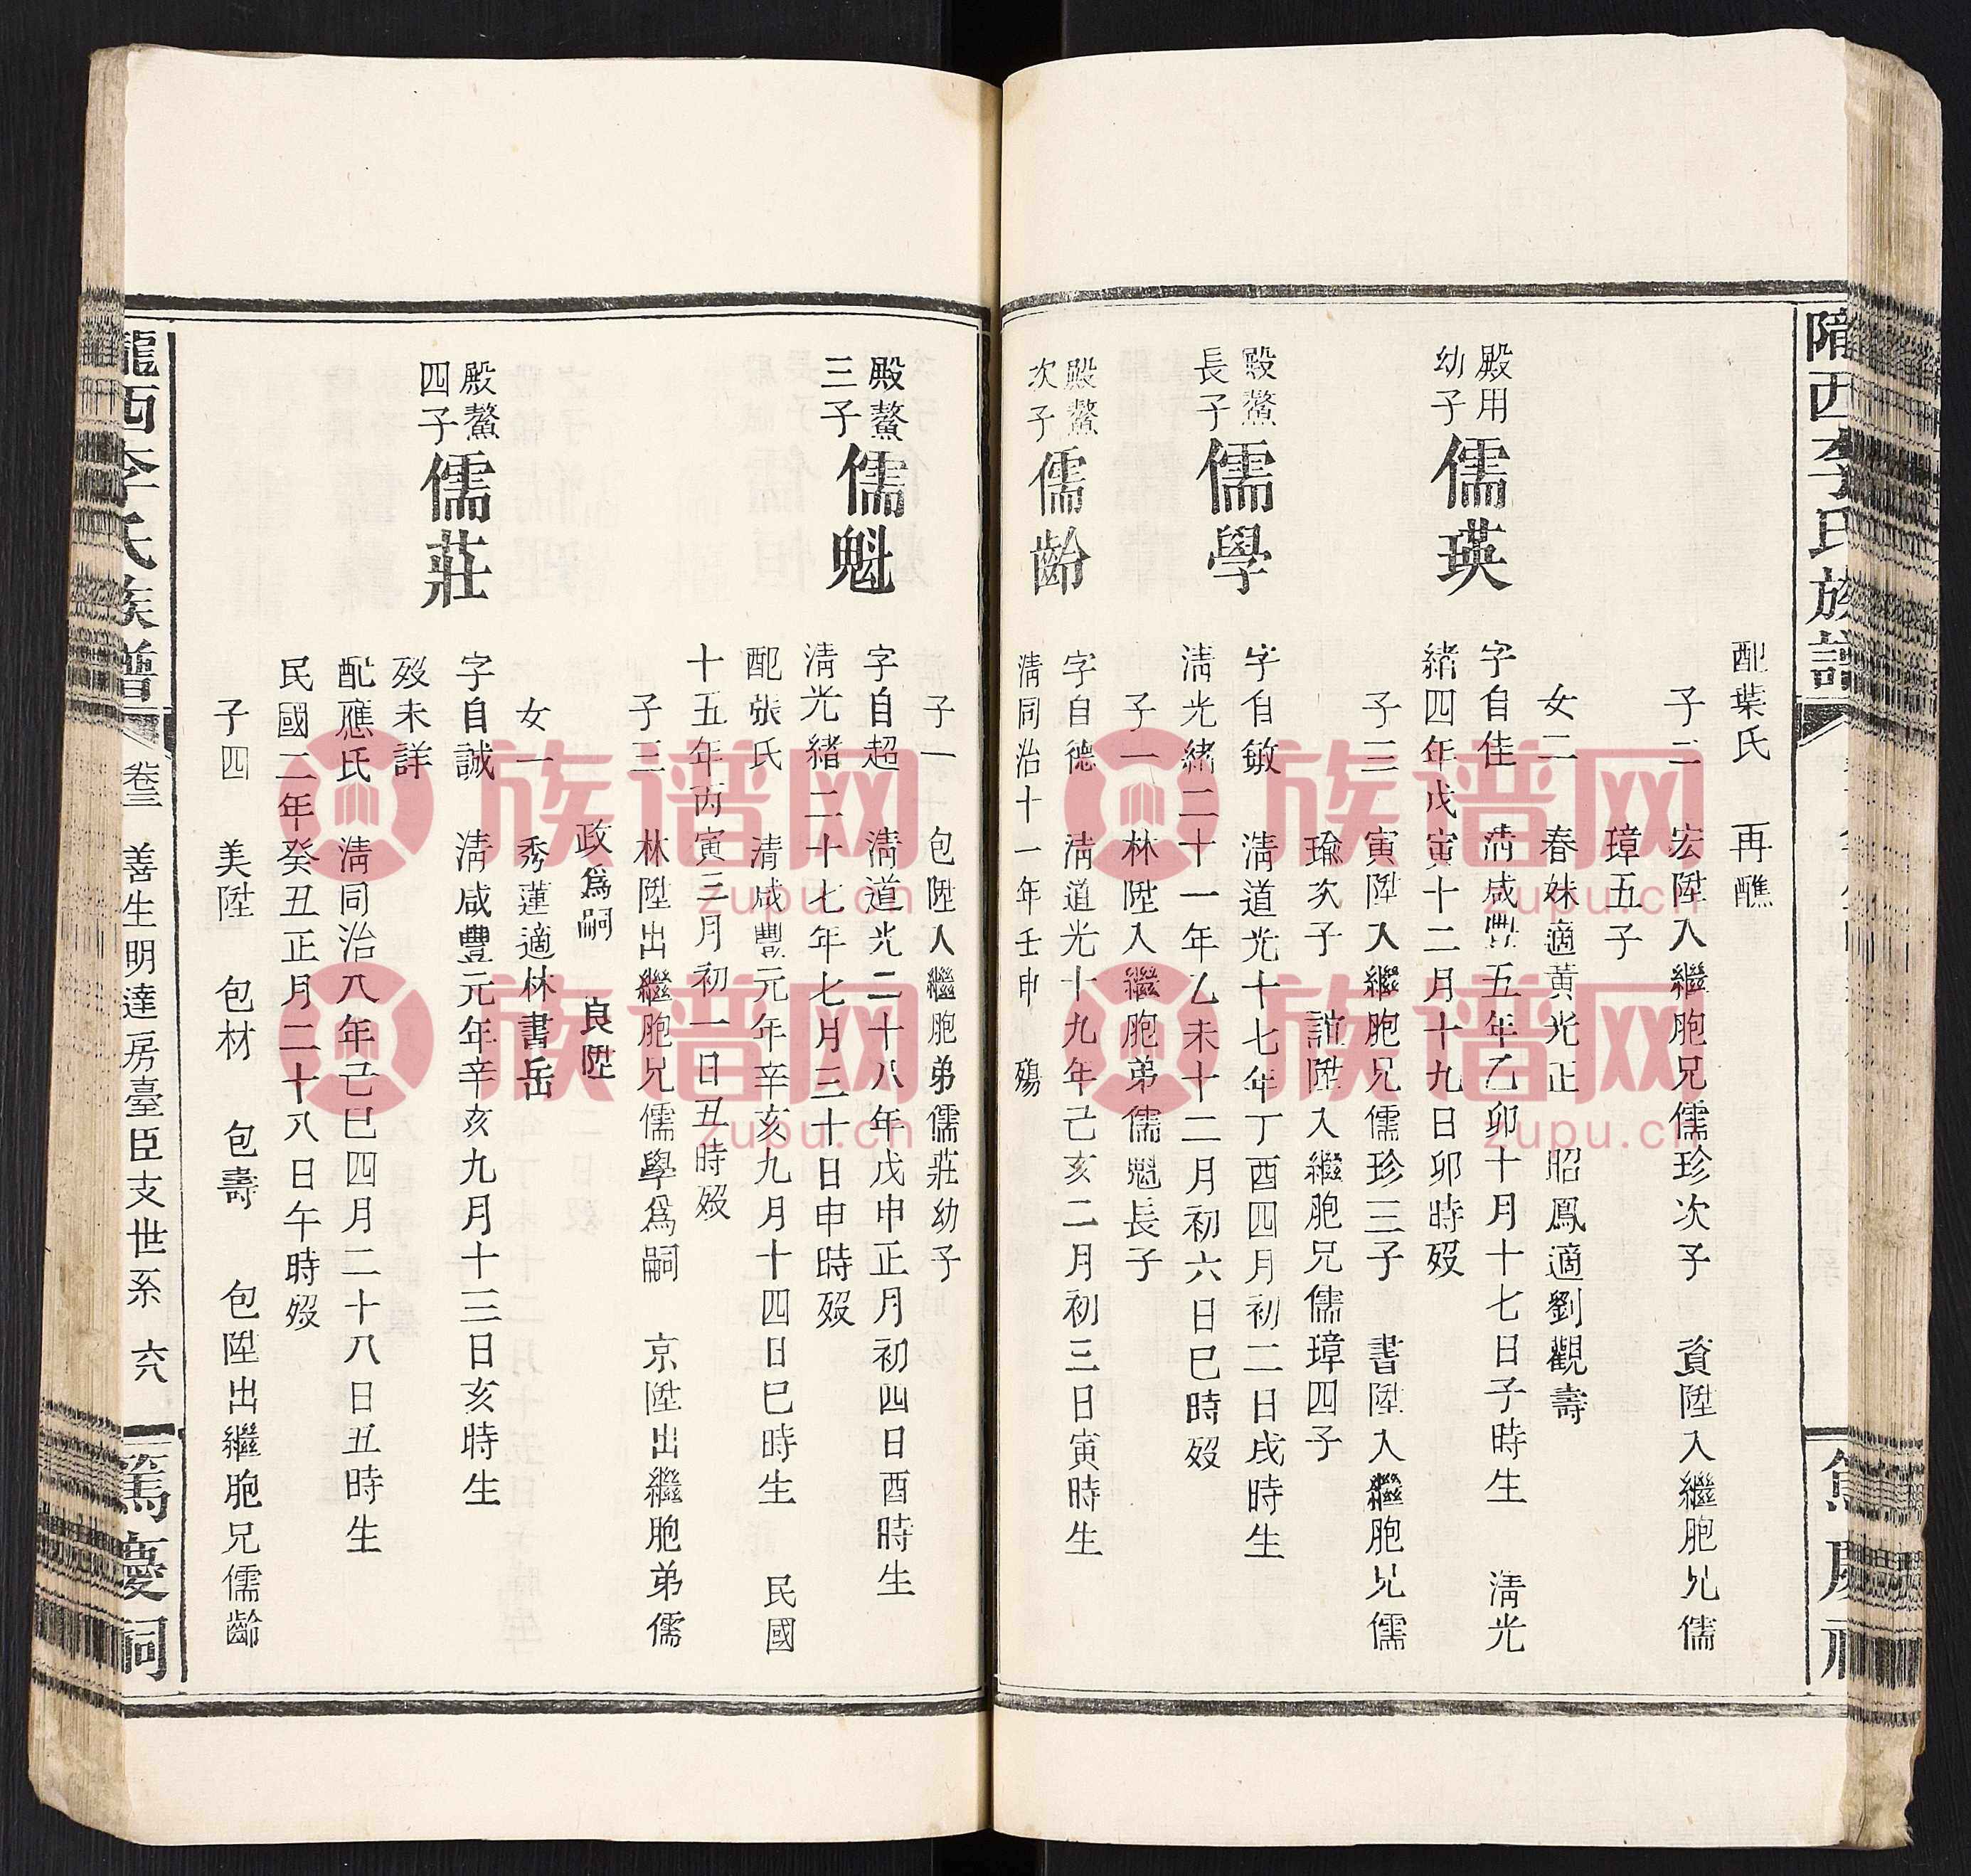 隴西李氏族譜
配葉氏 再醮
子二 宏陞入繼胞兄儒珍次子 資陞入繼胞兄儒
璋五子
女二 春妹適黃光正 昭鳳適劉觀壽
殿用
幼子
儒瑛
字自佳 清咸豐五年乙卯十月十七日子時生 清光
緒四年戊寅十二月十九日卯時歿
子三 寅陞入繼胞兄儒珍三子 書陞入繼胞兄儒
瑜次子 誼陞入繼胞兄儒璋四子
殿鰲
長子
儒學
字自敏 清道光十七年丁酉四月初二日戌時生
清光緒二十一年乙未十二月初六日巳時歿
子一 林陞入繼胞弟儒魁長子
殿鰲
次子
儒齡
字自德 清道光十九年己亥二月初三日寅時生
清同治十一年壬申 殤
子一 包陞入繼胞弟儒莊幼子
殿鰲
三子
儒魁
字自超 清道光二十八年戊申正月初四日酉時生
清光緒二十七年七月三十日申時歿
配張氏 清咸豐元年辛亥九月十四日巳時生 民國
十五年丙寅三月初一日丑時歿
子三 林陞出繼胞兄儒學爲嗣 京陞出繼胞弟儒
政爲嗣 良陞
女一 秀蓮適林書岳
殿鰲
四子
儒莊
字自誠 清咸豐元年辛亥九月十三日亥時生
歿未詳
配應氏 清同治八年己巳四月二十八日丑時生
民國二年癸丑正月二十八日午時歿
子四 美陞 包材 包壽 包陞出繼胞兄儒齡
隴西李氏族譜 卷三 善生明達房臺臣支世系 六八 篤慶祠
族谱网
zupu.cn
族谱网
zupu.cn
族谱网
zupu.cn
族谱网
zupu.cn